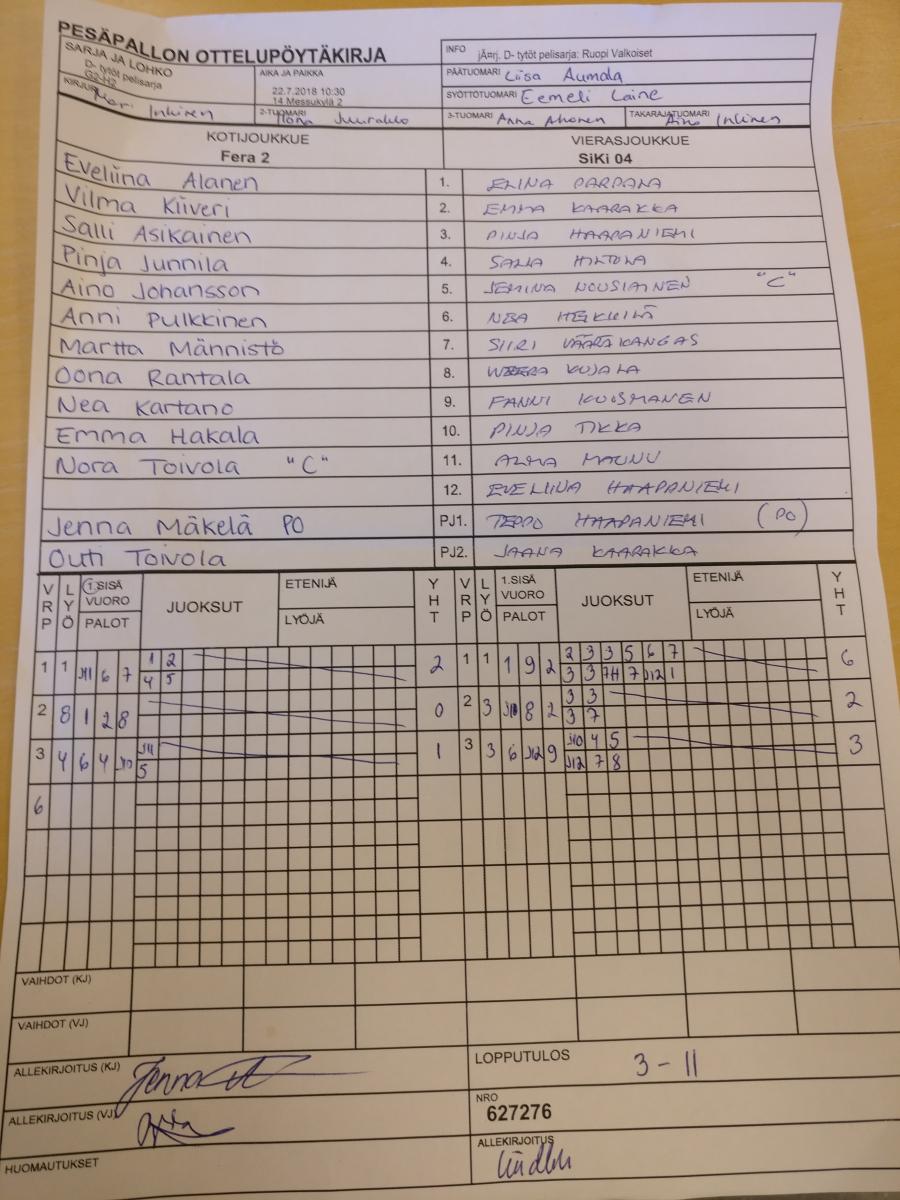 PESÄPALLON OTTELUPÖYTÄKIRJA
SARJA JA LOHKO
D- tytöt pelisarja
G2-H2
AIKA JA PAIKKA
22.7.2018 10:30
14 Messukylä 2
INFO jÃ¤rj. D- tytöt pelisarja: Ruopi Valkoiset
PÄÄTUOMARI Liisa Aumala
SYÖTTÖTUOMARI Eemeli Laine
KIRJURI Mari Inkinen
2-TUOMARI Ilona Juurakko
3-TUOMARI Anna Ahonen
TAKARAJATUOMARI Aino Inkinen
KOTIJOUKKUE VIERASJOUKKUE
Fera 2 SiKi 04
Eveliina Alanen 1. ELINA PARPALA
Vilma Kiiveri 2. EMMA KAARAKKA
Salli Asikainen 3. PINJA HAAPANIEMI
Pinja Junnila 4. SALLA HILTOLA
Aino Johansson 5. JEMINA NOUSIAINEN "C"
Anni Pulkkinen 6. NEA HEIKKILÄ
Martta Männistö 7. SIIRI VÄÄRÄKANGAS
Oona Rantala 8. KUJALA
Nea Kartano 9. FANNI KUOSMANEN
Emma Hakala 10. PINJA TIKKA
Nora Toivola "C" 11. ALMA MAUNU
12. EVELIINA HAAPANIEMI
Jenna Mäkelä PO PJ1. TEPPO HAAPANIEMI (PO)
Outi Toivola PJ2. JAANA KAARAKKA
VRP LYÖ 1.SISÄ VUORO PALOT JUOKSUT ETENIJÄ LYÖJÄ YHT VRP LYÖ 1.SISÄ VUORO PALOT JUOKSUT ETENIJÄ LYÖJÄ YHT
1 1 J11 6 7 1 2 2 1 1 1 9 2 2 3 3 5 6 7 6
4 5 3 3 7H 7 J12 1
2 8 1 2 8 0 2 3 J10 8 2 3 3 2
3 7
3 4 6 4 J10 J11 1 3 3 6 J12 9 J10 4 5 3
5 J12 7 8
6
VAIHDOT (KJ)
VAIHDOT (VJ)
ALLEKIRJOITUS (KJ) Jenna
LOPPUTULOS 3 - 11
ALLEKIRJOITUS (VJ)
NRO
627276
HUOMAUTUKSET
ALLEKIRJOITUS